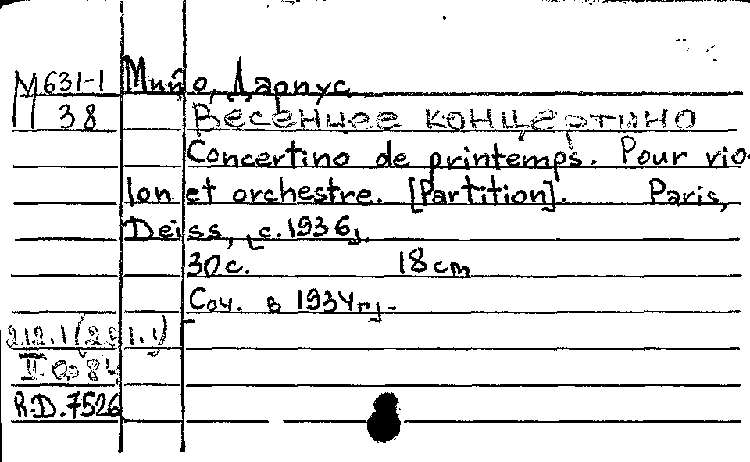 М 631-1 Мийо, Дариус
38 Весеннее концертино
Concertino de printemps. Pour vio-
lon et orchestre. [Partition]. Paris,
Deiss, [c. 1936].
30 c. 18 cm
[Соч. в 1934 г.].
R.D. 7526